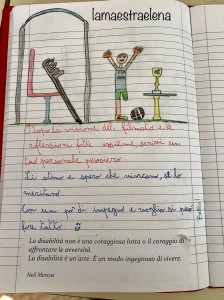 lamaestraelena
Dopo la visione del filmato e le
riflessioni fatte insieme, scrivi un
tuo personale pensiero.
Li stimo e spero che vincano, se lo
meritano.
Con un po' di impegno e voglia si può
fare tutto.
La disabilità non è una coraggiosa lotta o il coraggio di
affrontare le avversità.
La disabilità è un'arte. È un modo ingegnoso di vivere.
Neil Marcus